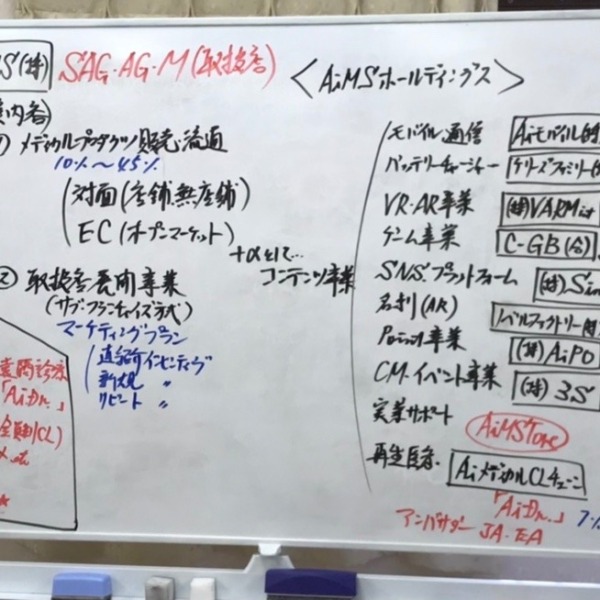 S(株) SAG・AG・M(取扱店)
案内者)
① メディカルプロダクツ販売・流通
10%〜45%
対面(店舗・無店舗)
EC(オープンマーケット)
+αとして…
コンテンツ事業
② 取扱店展開事業
(サブ・フランチャイズ方式)
マーケティングプラン
直紹介インセンティブ
新規 〃
リピート 〃
問診
「AiDr.」
CL)
<AiMSホールディングス>
モバイル通信 Aiモバイル
バッテリーチャージャー ファミリー
VR・AR事業 (株)VARMist
ゲーム事業 C-GB(合)
SNS.プラットフォーム (株)Sin
名刺(AR) ノベルファクトリー
Point事業 (株)AiPO
CM・イベント事業 (株)3.S
実業サポート AiMSTore
再生医療 AiメディカルCLチェーン
「AiDr.」
アンバサダー JA・EA